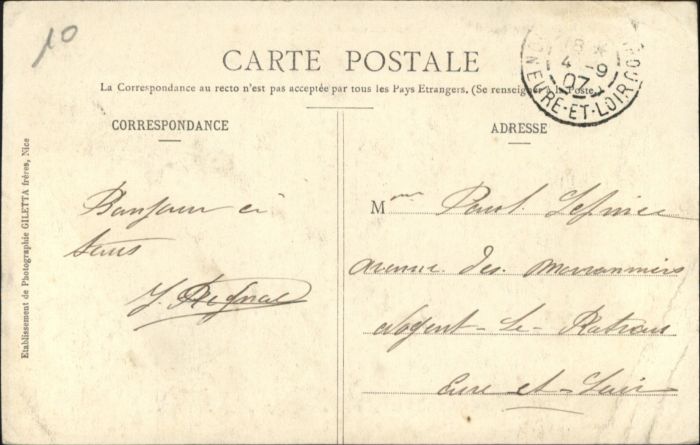 10
CARTE POSTALE
La Correspondance au recto n'est pas acceptée par tous les Pays Etrangers. (Se renseigner à la Poste.)
18 *
4 - 9
07
EURE-ET-LOIR
CORRESPONDANCE
ADRESSE
Bonjour à
tous
J. Regnal
Mme Paul Lefèvre
avenue des Marronniers
Nogent-le-Rotrou
Eure-et-Loir
Etablissement de Photographie GILETTA frères, Nice